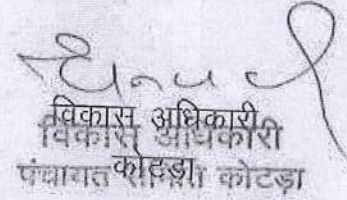 विकास अधिकारी
विकास अधिकारी
कोटड़ा
पंचायत समिति कोटड़ा